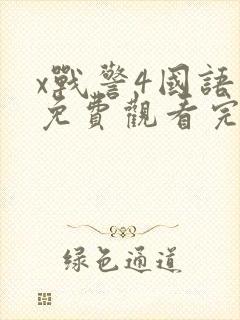 x戰警4國語
免費觀看完
綠色通道